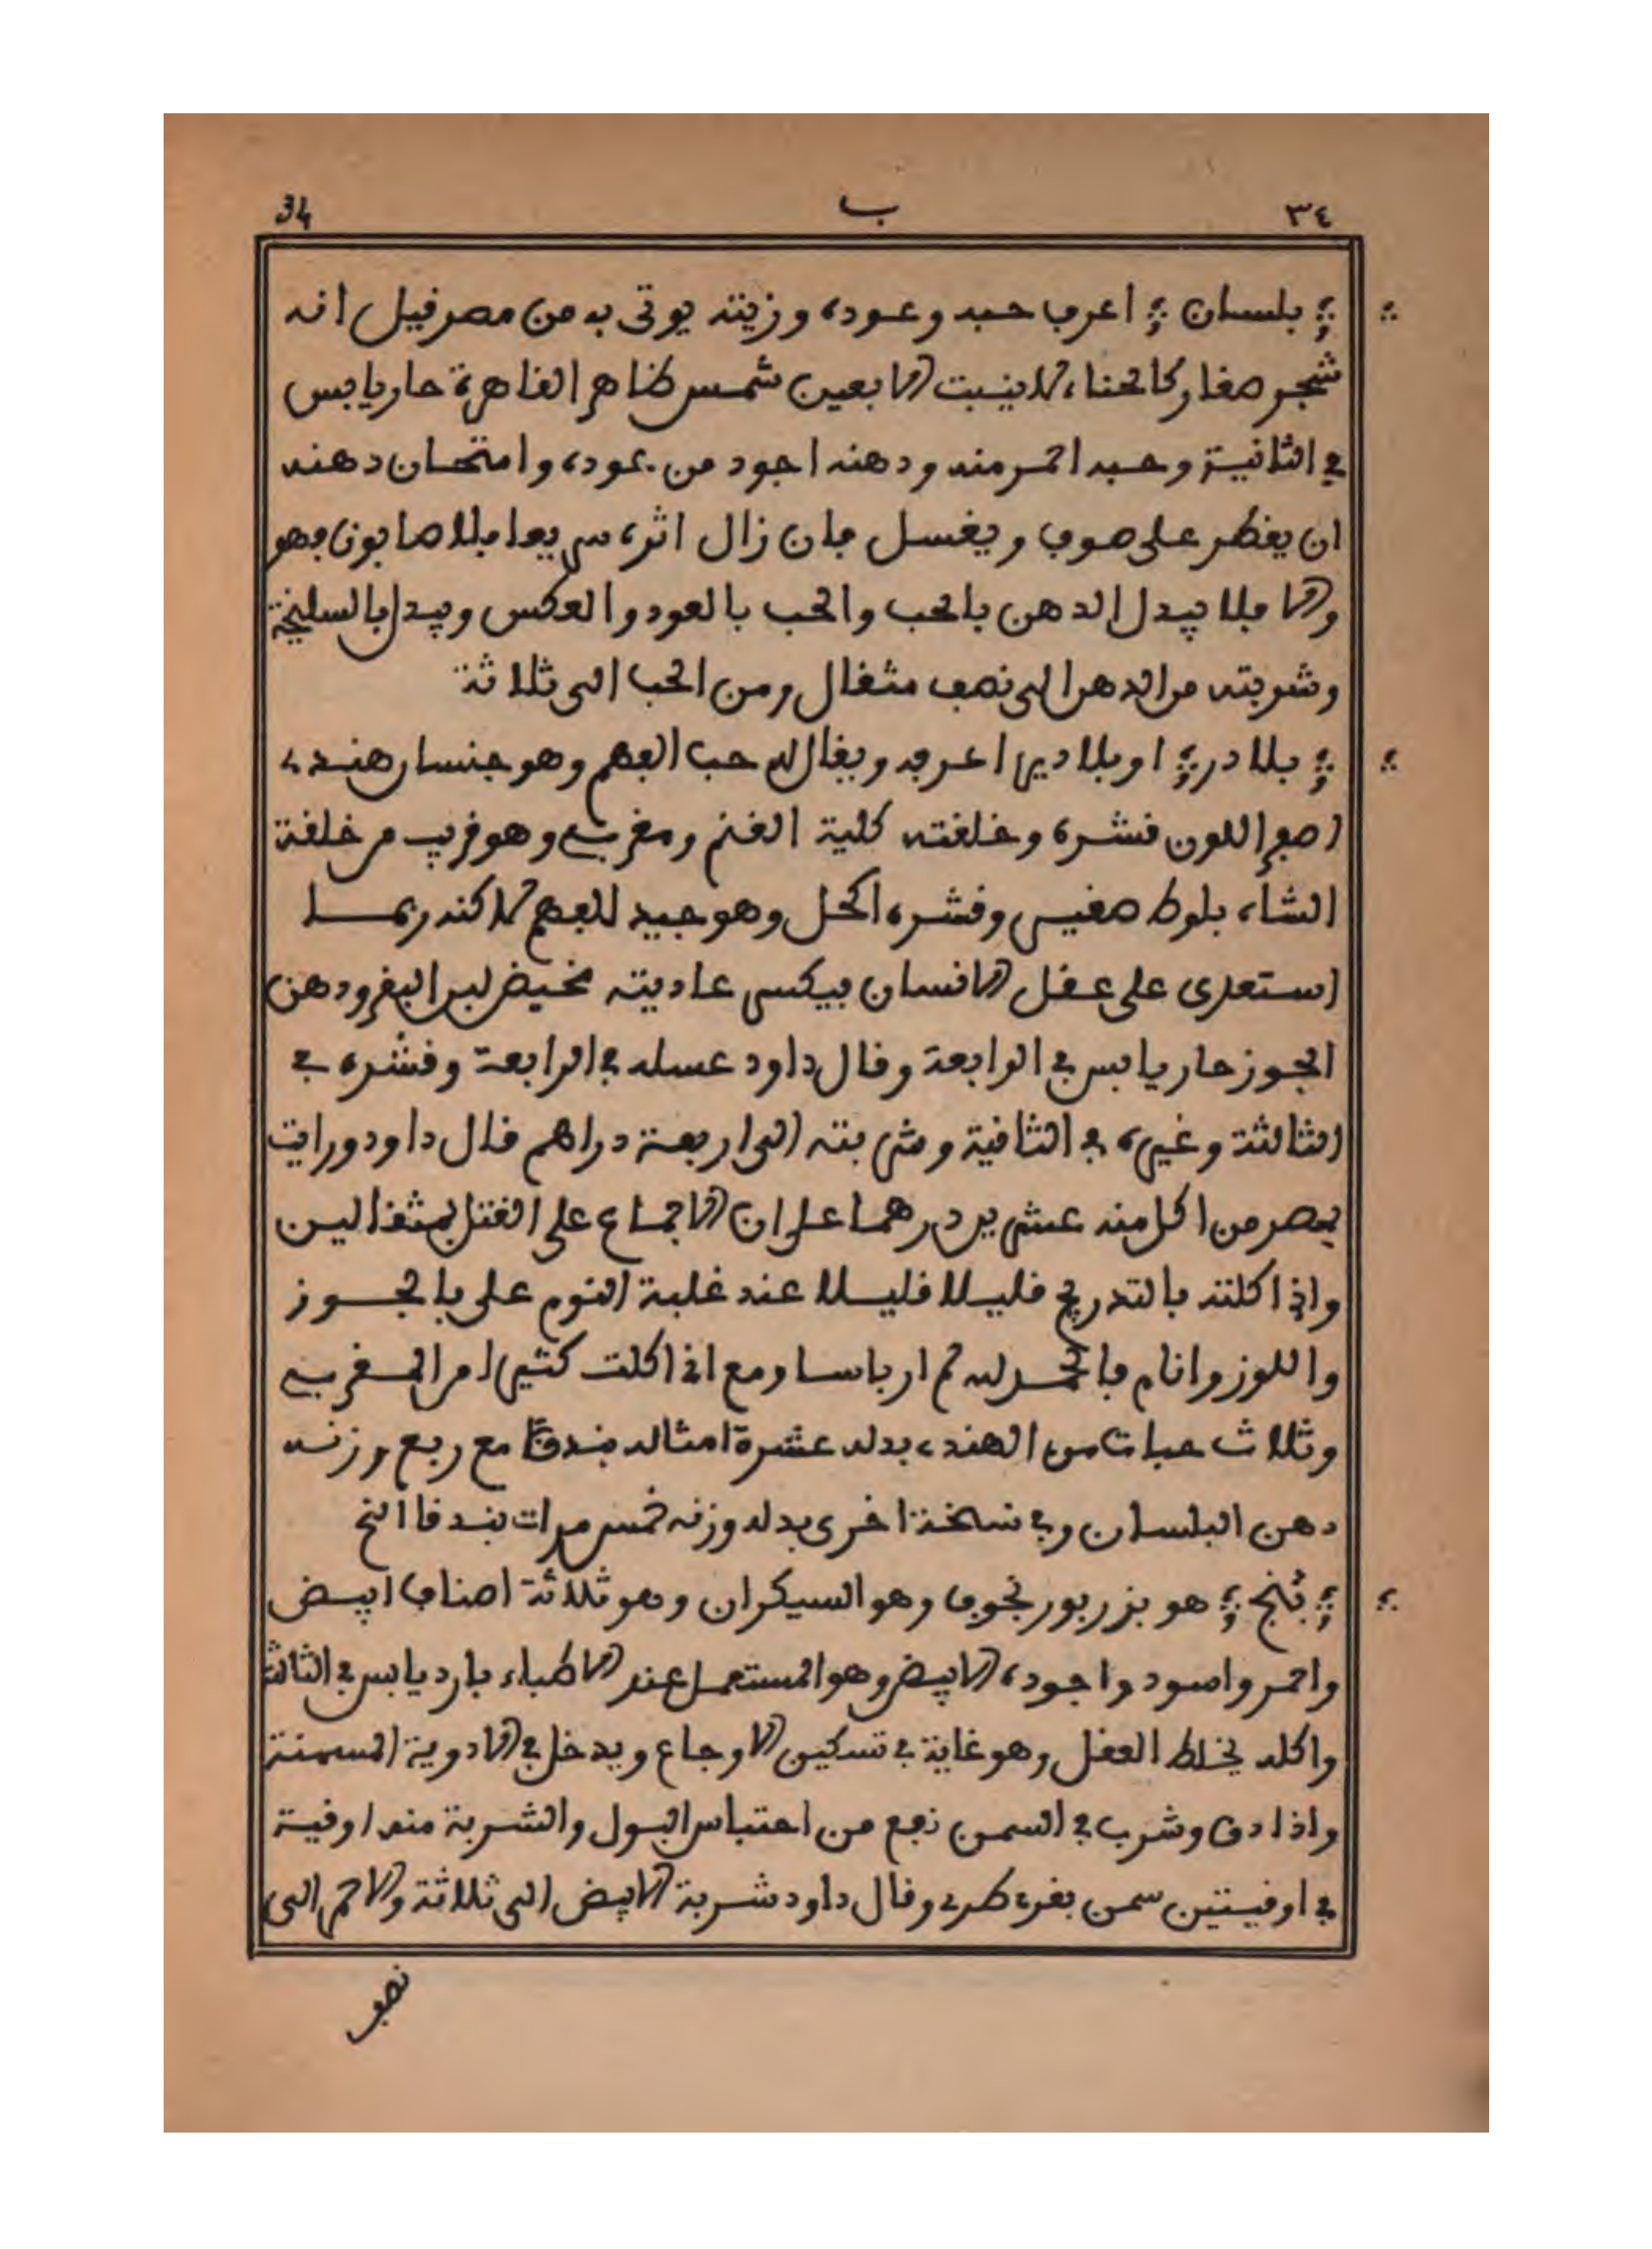 ٣٤ ب 34
بلسان اعرف حبه وعوده وزيته يوتى به من مصر قيل انه
شجر صغار كالحناء لا ينبت الا بعين شمس ظاهر القاهرة حار يابس
في الثانية وحبه احر منه ودهنه اجود من عوده وامتحان دهنه
ان يقطر على صوف ويغسل فان زال اثره سريعا بلا صابون فهو
والا فلا يبدل الدهن بالحب والحب بالعود والعكس ويبدل بالسليخة
وشربته من الدهن الى نصف مثقال ومن الحب الى ثلاثة
بلادر او بلادير اعرفه ويقال له حب الفهم وهو جنسان هندي
اصفر اللون قشره وخلقته كلية الغنم ومغربي وهو قريب من خلقة
الشاه بلوط صغير وقشره اكحل وهو جيد للفهم لاكنه ربما
استعدى على عقل الانسان فيكسر عاديته مخيض لبن البقر ودهن
الجوز حار يابس في الرابعة وقال داود عسله في الرابعة وقشره في
الثالثة وغيره في الثانية وشربته الى اربعة دراهم قال داود ورايت
بمصر من اكل منه عشرين درهما على ان الاجماع على القتل بمثقالين
واني اكلته بالتدريج قليلا قليلا عند غلبة النوم علي بالجوز
واللوز وانام فالحمد لله لم ار باسا ومع اني اكلت كثيرا من المغربي
وثلاث حبات من الهندي بدله عشرة امثاله بندقا مع ربع وزنه
دهن البلسان وفي نسخة اخرى بدله وزنه خمس مرات بندقا الخ
بنج هو بزر بورنجوف وهو السيكران وهو ثلاثة اصناف ابيض
واحمر واسود واجوده الابيض وهو المستعمل عند الاطباء بارد يابس في الثالثة
واكله يخلط العقل وهو غاية في تسكين الاوجاع ويدخل في الادوية المسمنة
واذا دق وشرب في السمن نفع من احتباس البول والشربة منه اوقية
في اوقيتين سمن بقري طري وقال داود شربة الابيض الى ثلاثة والاحمر الى
نصف